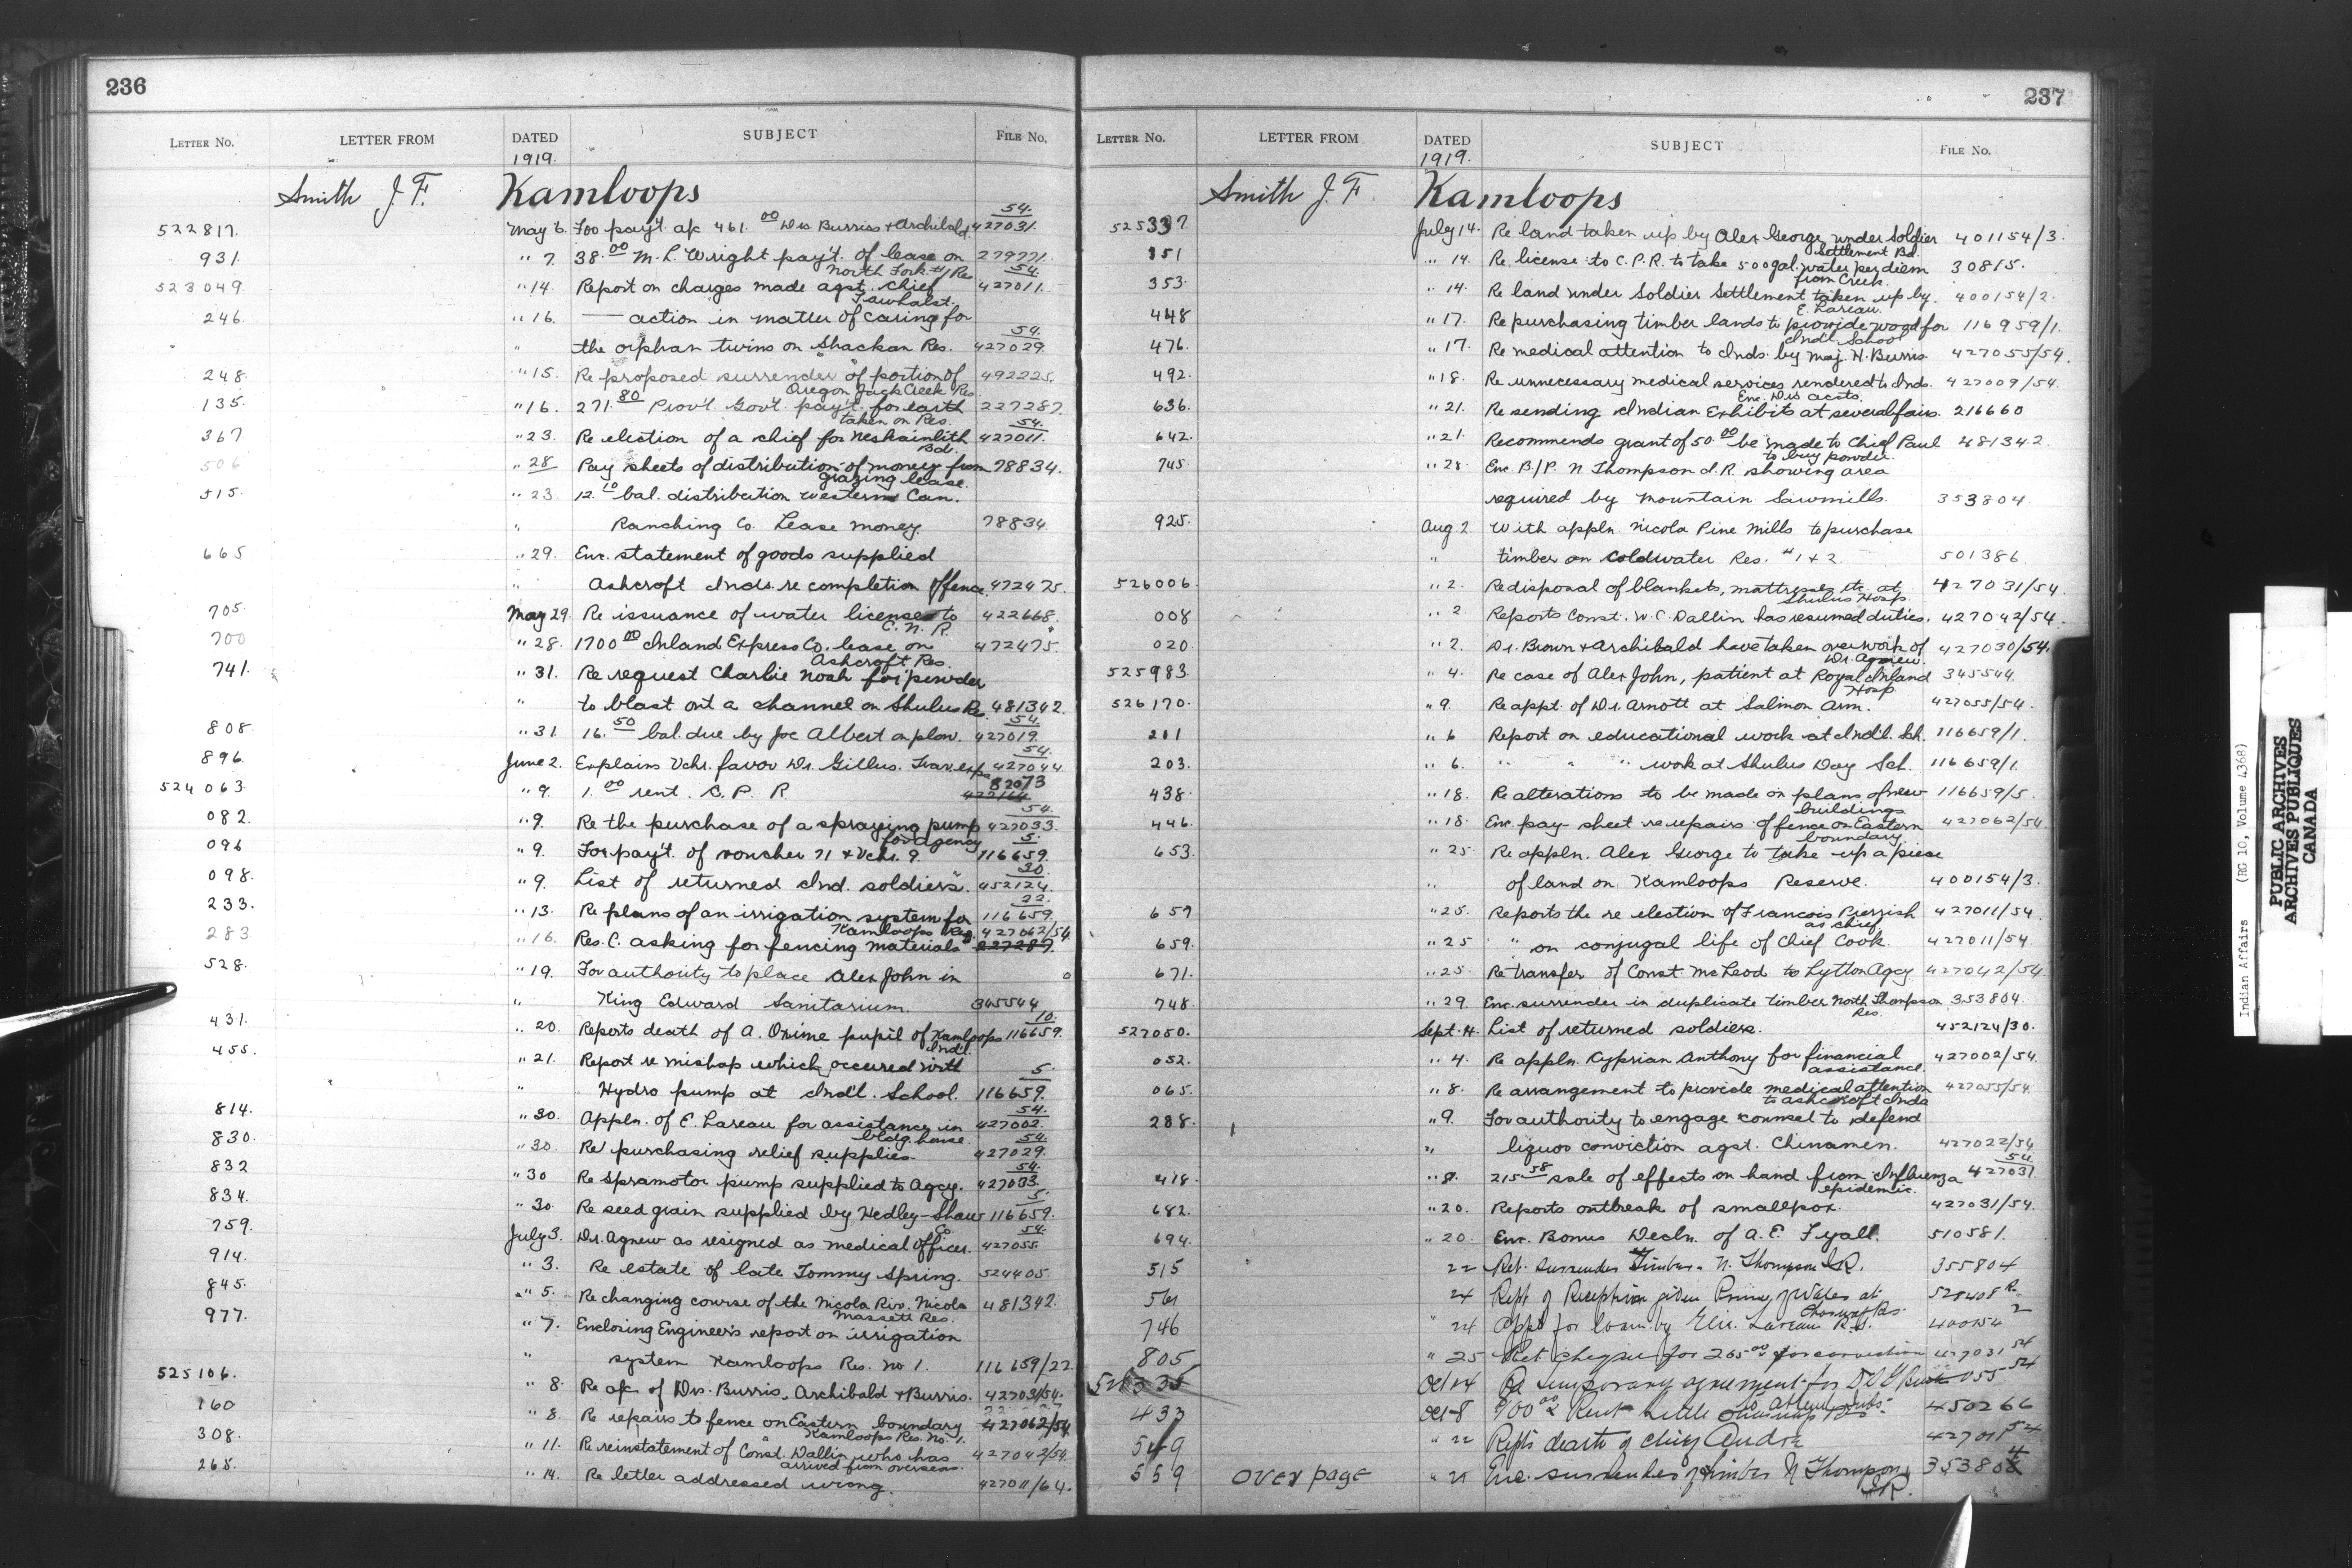 236
LETTER No. LETTER FROM DATED SUBJECT FILE No.
1919.
Smith J. F. Kamloops
522817. May 6. For pay't. a/c 461.00 Drs. Burris & Archibald. 427031. 54.
931. " 7. 38.00 M. L. Wright pay't. of lease on 279771.
North Fork #1 Res.
523049. " 14. Report on charges made agst. Chief 427011. 54.
Tawhalst.
246. " 16. — action in matter of caring for
" the orphan twins on "Shackan" Res. 427029. 54.
248. " 15. Re proposed surrender of portion of 492225.
Oregon Jack Creek Res.
135. " 16. 271.80 Prov'l. Gov't. pay't. for earth 227287.
taken on Res.
367 " 23. Re election of a chief for Neskainlith 427011. 54.
Bd.
506 " 28 Pay sheets of distribution of money from 78834.
grazing lease.
515. " 23. 12.10 bal. distribution western Can.
" Ranching Co. Lease money. 78834.
665 " 29. Enc. statement of goods supplied
" Ashcroft Inds. re completion of fence. 472475.
705. May 29. Re issuance of water license to 422668.
C. N. R.
700 " 28. 1700.00 Inland Express Co. lease on 472475.
Ashcroft Res.
741. " 31. Re request Charlie Nosh for powder
" to blast out a channel on Shulus Re. 481342.
808. " 31. 16.50 bal. due by Joe Albert on plow. 427019. 54.
896. June 2. Explains Vchr. favor Dr. Gillus. Trav. exp. 427044. 54.
524063. " 9. 1.00 rent. C. P. R. 82073
082. " 9. Re the purchase of a spraying pump 427033. 54.
for Agency
096 " 9. For pay't. of voucher 71 & Vchr. 9. 116659. 5.
098. " 9. List of returned Ind. soldiers. 452124. 30.
233. " 13. Re plans of an irrigation system for 116659. 22.
Kamloops Res.
283 " 16. Res. C. asking for fencing materials 427062/54 227287.
528. " 19. For authority to place Alex John in
" King Edward Sanitarium. 345544
431. " 20. Reports death of A. Oxime pupil of Kamloops 116659. 10.
Ind'l.
455. " 21. Report re mishap which occurred with
" Hydro pump at Ind'l. School. 116659. 5.
814. " 30. Appln. of E. Lareau for assistance in 427002. 54.
bldg. house.
830. " 30. Re purchasing relief supplies. 427029. 54.
832 " 30 Re Spramotor pump supplied to Agcy. 427033. 54.
834. " 30. Re seed grain supplied by Hedley-Shaw 116659. 5.
Co.
759. July 3. Dr. Agnew as resigned as medical officer. 427055. 54.
914. " 3. Re estate of late Tommy Spring. 524405.
845. " 5. Re changing course of the Nicola Riv. Nicola 481342.
Massett Res.
977. " 7. Enclosing Engineer's report on irrigation
" system Kamloops Res. No 1. 116659/22
525106. " 8. Re a/c of Drs. Burris, Archibald & Burris. 427031/54.
160 " 8. Re repairs to fence on Eastern boundary 427062/54
Kamloops Res. No. 1.
308. " 11. Re reinstatement of Const. Dallin who has 427042/54.
arrived from overseas.
268. " 14. Re letter addressed wrong. 427011/64.
237
LETTER No. LETTER FROM DATED SUBJECT FILE No.
1919.
Smith J. F. Kamloops
525337 July 14. Re land taken up by Alex George under Soldier 401154/3.
Settlement Bd.
351 " 14. Re license to C.P.R. to take 500 gal. water per diem 30815.
from Creek.
353. " 14. Re land under Soldier Settlement taken up by 400154/2.
E. Lareau.
448 " 17. Re purchasing timber lands to provide wood for 116959/1.
Ind'l. School
476. " 17. Re medical attention to Inds. by Maj. H. Burris 427055/54.
492. " 18. Re unnecessary medical services rendered to Inds. 427009/54.
Enc. Drs accts.
636. " 21. Re sending Indian Exhibits at several fairs. 216660
642. " 21. Recommends grant of 50.00 be made to Chief Paul 481342.
to buy powder.
745. " 28 Enc. B/P. N Thompson I.R. showing area
required by Mountain Sawmills. 353804
925. Aug 2. With appln. Nicola Pine Mills to purchase
" timber on Coldwater Res. #1 & 2. 501386
526006. " 2. Re disposal of blankets, mattresses etc. at 427031/54.
Shulus Hosp.
008 " 2. Reports Const. W. C. Dallin has resumed duties. 427042/54.
020 " 2. Dr. Brown & Archibald have taken over work of 427030/54.
Dr. Agnew.
525983. " 4. Re case of Alex John, patient at Royal Inland 345544.
Hosp.
526170. " 9. Re appt. of Dr. Arnott at Salmon Arm. 427055/54.
201 " 6 Report on educational work at Ind'l. Sch. 116659/1.
203. " 6. " " " work at Shulus Day Sch. 116659/1.
438. " 18. Re alterations to be made on plans of new 116659/5.
buildings
446. " 18. Enc. pay-sheet re repairs of fence on Eastern 427062/54.
boundary
653. " 25 Re appln. Alex George to take up a piece
" of land on Kamloops Reserve. 400154/3.
657 " 25. Reports the re election of Francois Pierrish 427011/54.
as chief
659. " 25 " on conjugal life of Chief Cook. 427011/54.
671. " 25. Re transfer of Const. McLeod to Lytton Agcy 427042/54.
748. " 29. Enc. surrender in duplicate timber North Thompson 353804.
Res.
527050. Sept. 4. List of returned soldiers. 452124/30.
052. " 4. Re appln. Kyprian Anthony for financial 427002/54.
assistance.
065. " 8. Re arrangement to provide medical attention 427055/54.
to Ashcroft Inds
288. " 9. For authority to engage counsel to defend
" liquor conviction agst. Chinamen. 427022/54
418. " 8. 215.58 sale of effects on hand from Influenza 427031. 54
epidemic.
682. " 20. Reports outbreak of smallpox. 427031/54.
694. " 20. Enc. Bonus Decln. of A. E. Fyall. 510581.
515 22 Ret. Surrender Timber N. Thompson I.R. 355804
561 24 Rept. of Reception given Prince of Wales at
746 " 24 Appt for loan by Elie. Lareau 400154 2
805 " 25 Ret. cheque for 265.00 for conviction 427031 54
Oct 4 Re temporary agreement for 055 54
to attend Inds.
433 Oct 8 900.00 Rent Little 450266
549 " 22 Rept's death of Chief André 427011 54
559 over page " 25 Enc. surrender of timber N Thompson 353804
I.R.
Indian Affairs (RG 10, Volume 4368)
PUBLIC ARCHIVES
ARCHIVES PUBLIQUES
CANADA